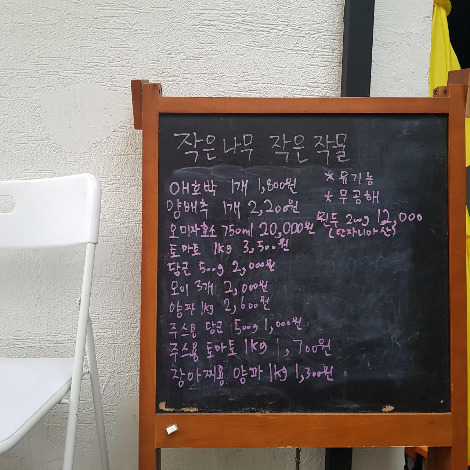 작은나무 작은작물
애호박 1개 1,800원
양배추 1개 2,200원
오미자효소 750ml 20,000원
토마토 1kg 3,500원
당근 500g 2,000원
오이 3개 2,000원
양파 1kg 2,600원
주스용 당근 500g 1,000원
주스용 토마토 1kg 1,700원
장아찌용 양파 1kg 1,300원
* 유기농
* 무공해
원두 200g 12,000
(탄자니아산)